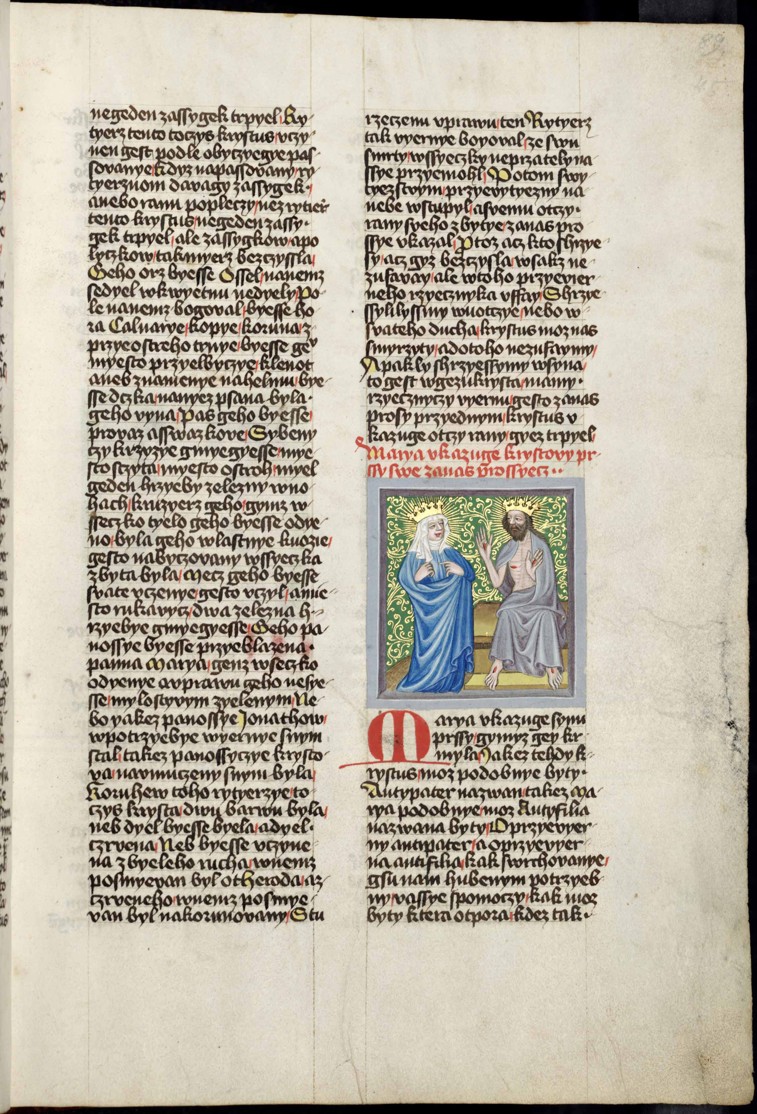 89
negeden zassygek trpyel Ry
tyerz tento toczys krystus vczy
nen gest podle obyczyegye pas
sovanye kdyz napassovany ry
tyerzuom davagy zassygek
anebo ranu popleczy nez rytierz
tento krystus negeden zassy
gek trpyel ale zassygkow apo
lyczkow takmyerz bezczyssla
Geho orz byesse Ossel nanemz
sedyel wkwyetnu nedyely Po
le nanemz bogoval byesse ho
ra Calvarye kopye koruna z
przyeostreho trnye byesse geu
myesto przyelbyczye klenot
aneb znamenye nahelmu bye
sse dczka nanyez psana byla
geho vyna Pas geho byesse
provaz asswazkove Sybeny
czy krzyzye gmyegyesse mye
sto sczyta myesto ostroh myel
geden hrzyeby zelezny wno
hach kruzyerz geho gymz w
sseczko tyelo geho byesse odye
no byla geho wlastnye kuozie
gesto nabyczovany wssyeczka
zbyta byla Mecz geho byesse
svate vczenye gesto vczyl amie
sto rukavycz dwa zelezna h
rzyebye gmyegyesse Geho pa
nossye byesse przyeblazena
panna Marya genz wseczko
odyenye avprawu geho nesye
sse mylostyvym zyelenym Ne
bo yakez panossye Jonathow
wpotrzyebye wyernye snym
stal takez panossyczye krysto
va navmuczeny snym byla
Koruhew toho rytyerzye to
czys krysta dwu barwu byla
neb dyel byesse byela adyel
czrvena Neb byesse vczyne
na zbyeleho rucha wnemz
posmyevan byl otHeroda az
czrveneho wnemz posmye
van byl nakorunovany Stu
rzeczenu vprawu ten Rytyerz
tak vyernye boyoval ze swu
smrty wssyeczky neprzately na
ssye przyemohl Potom swy
tyezstvym przyevytyezny na
nebe wstupyl asvemu otczy
rany sveho zbytye zanas pro
ssye vkazal Ptoz acz kto shrzye
sy acz gyz bezczysla wsak ne
zufavay ale wtoho przyevier
neho rzyecznyka vffay Shrzye
ssylilyssmy wuotczye nebo w
svateho ducha krystus moz nas
smyrzyty adotoho nezufaymy
Apakly shrzyessymy wsyna
to gest wgezukrysta mamy
rzyecznyczy vyernu gesto zanas
prosy przyednym krystus v
kazuge otczy rany gyez trpyel
Marya vkazuge krystovy pr
ssy swe zanas prossyecz
Marya vkazuge synu
prssy gymyz gey kr
myla Jakez tehdy k
rystus moz podobnye byty
Antypater nazwan takez Ma
rya podobnye moz Antyfilia
nazwana byty O przyevyer
ny antipater a oprzyevyer
na antifilia kak swrchovanye
gsu nam hubenym potrzyeb
ny vassye spomoczy kak moz
byty ktera otpora kdez tak